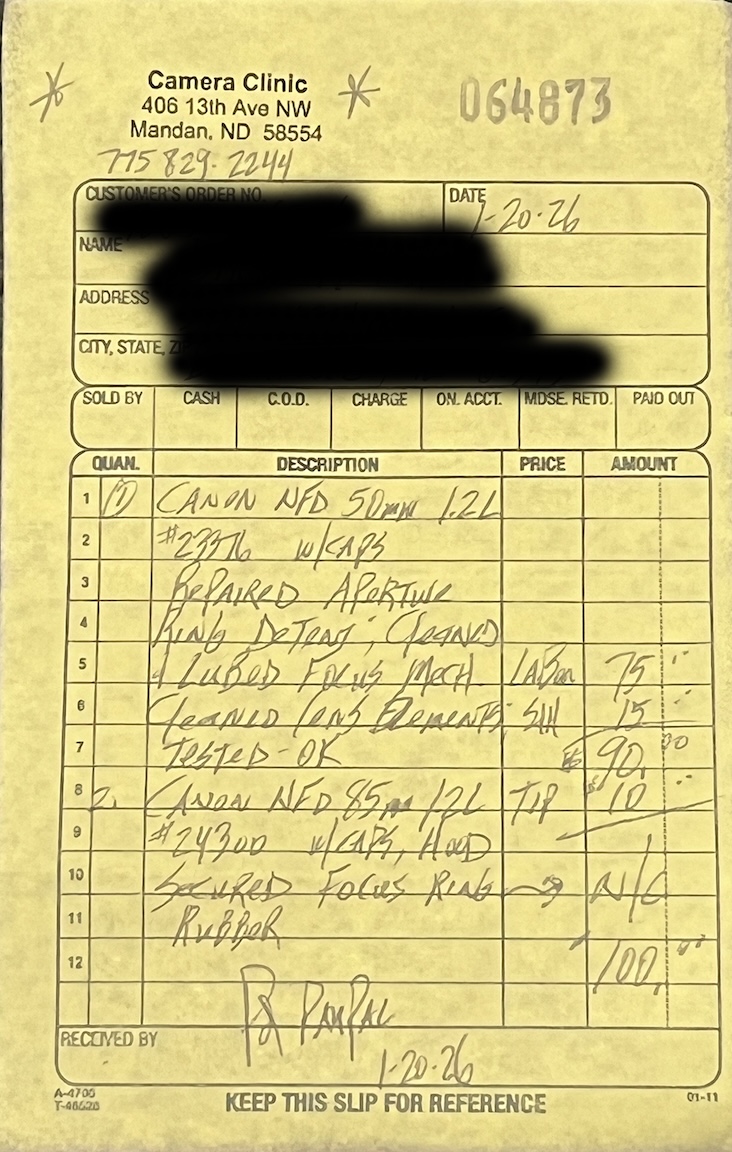 Camera Clinic
406 13th Ave NW
Mandan, ND 58554
064873
775 829-2244
CUSTOMER'S ORDER NO.
DATE
1-20-26
NAME
ADDRESS
CITY, STATE, Z
SOLD BY CASH C.O.D. CHARGE ON. ACCT. MDSE. RETD. PAID OUT
QUAN. DESCRIPTION PRICE AMOUNT
1 (1) CANON NFD 50mm 1.2L
2 w/CAPS
3 REPAIRED APERTURE
4 RING DETENT; CLEANED
5 & LUBED FOCUS MECH. LABOR 75
6 CLEANED LENS ELEMENTS; S/H 15
7 TESTED-OK $90.00
8 2. CANON NFD 85mm 1.2L TIP $10
9 #24300 w/CAPS, HOOD
10 SECURED FOCUS RING → N/C
11 RUBBER
12 100.
PD PAYPAL
RECEIVED BY
1-20-26
A-4700
01-11
KEEP THIS SLIP FOR REFERENCE